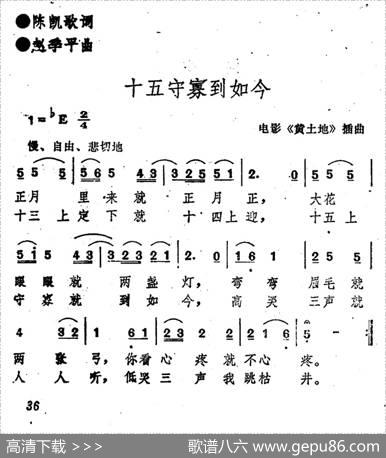 ●陈凯歌词
●赵季平曲
十五守寡到如今
1=♭E 2/4
电影《黄土地》插曲
慢、自由、悲切地
5 5 5 | 5 6 5 4 3 | 3 2 5 5 1 | 2. 0 | 5 5 5
正月 里来就 正月正, 大花
十三上定下就 十四上迎, 十五上
5 1 5 4 3 | 3 2 1 7 1 | 2. 0 | 1 6 1 | 2 5 5
眼就 两盏灯, 弯弯 眉毛就
守寡就 到如今, 高哭 三声就
4 3 2 | 1 | 1 2 3 2 | 5 2 4 3 2 | 1 6 1 2 | 5 -
两张弓,你看心疼就不心疼。
人人听,低哭三声我跳枯井。
36
高清下载 >>>
歌谱八六 www.gepu86.com